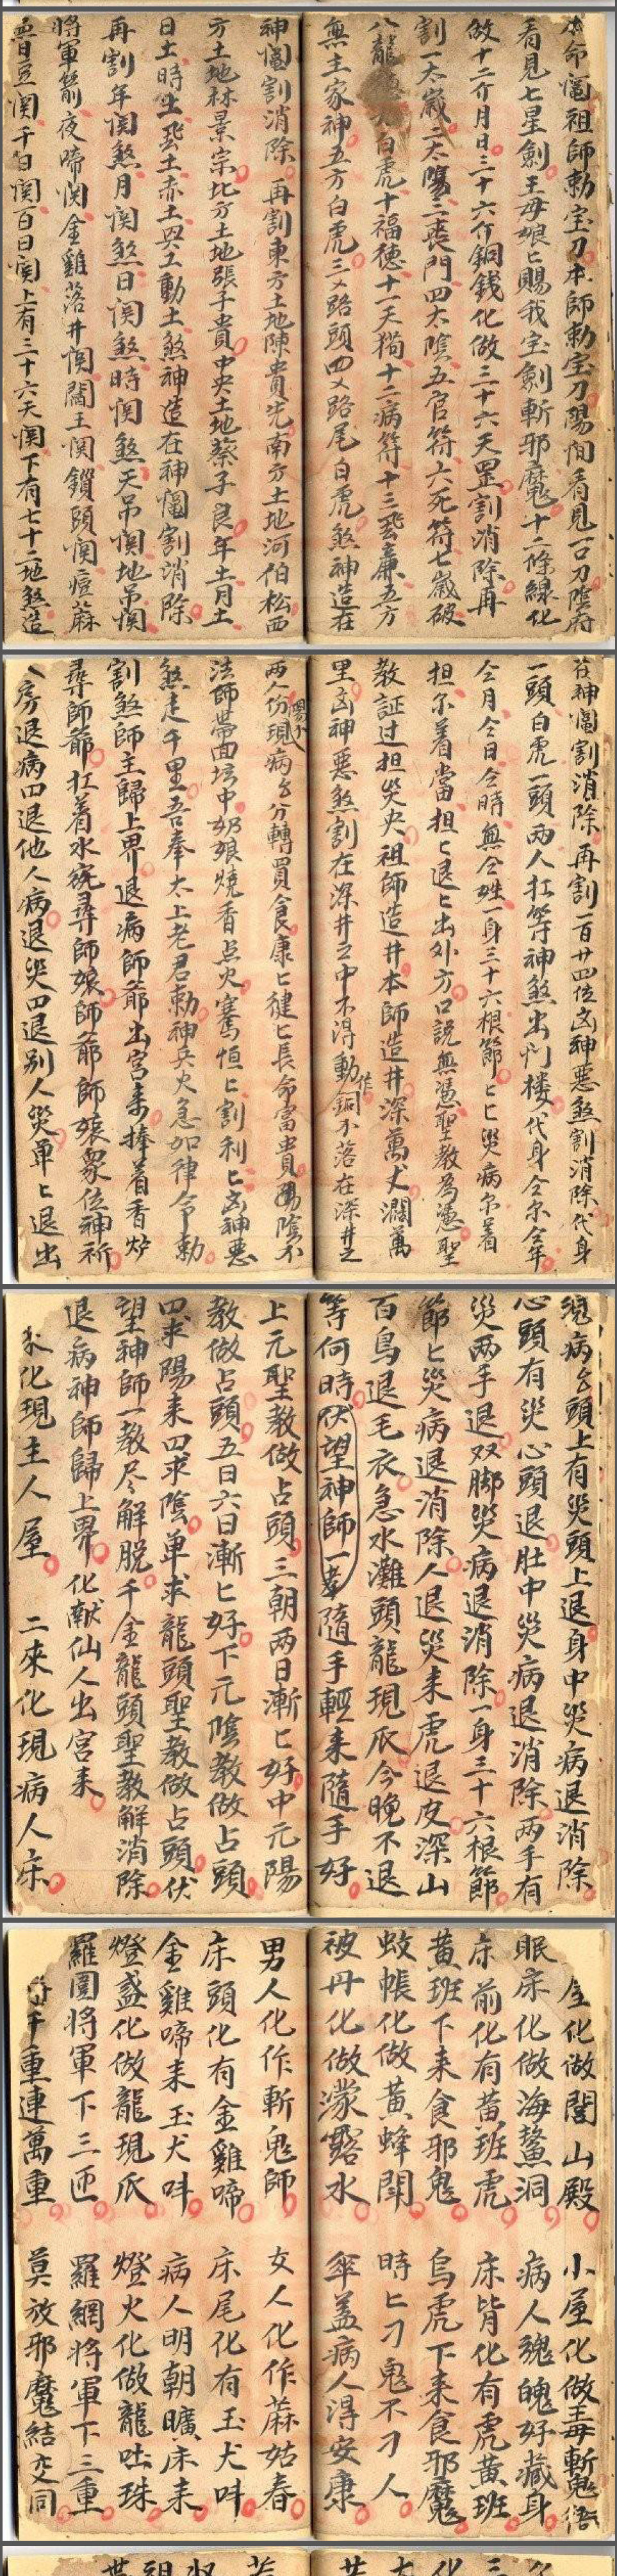 本命𭹹祖師勅宝刀本師勅宝刀陽间看見一口刀陰府
看見七星劍王母娘匕賜我宝劍斬邪魔十二條線化
做十二个月日三十六个銅銭化做三十六天罡割消除再
割一太歲二太陽三喪門四太陰五官符六死符七歲破
八龍 白虎十福德十一天狗十二病符十三蚩廉五方
無主家神五方白虎三乂路頭四乂路尾白虎煞神造在
神𭹹割消除 再割東方土地陳貴先南方土地河伯松西
方土地林景宗北方土地張子貴中央土地蔡子良年土月土
日土時土飛土赤土與工動土煞神造在神𭹹割消除
再割年関煞月関煞日関煞時関煞天吊関地吊関
將軍箭夜啼関金雞落井関閻王関鎖頭関痘蔴
関千日関百日関上有三十六天関下有七十二地煞造
在神𭹹割消除再割一百廿四位凶神悪煞割消除代身
一頭白虎一頭两人扛等神煞出门楼代身今尔今年
今月今日今時無仝姓一身三十六根節匕匕災病尔着
担尔着當担匕退匕出外方口説無憑聖教為憑聖
教証过担災央祖師造井本師造井深萬丈濶萬
里凶神悪煞割在深井之中不得動作銅不落在深井之
两人份現病台分轉買食康匕健匕長命富貴 陰不
法師帶面坛中奶娘燒香点火寫恒匕割利匕凶神悪
煞走千里吾奉太上老君勅神兵火急如律令勅
割煞師主歸上界退病師爺出宮来捧着香炉
尋師爺扛着水碗尋師娘師爺師娘眾位神祈
房退病四退他人病退災四退別人災单匕退出
病台頭上有災頭上退身中災病退消除
心頭有災心頭退肚中災病退消除两手有
災两手退双脚災病退消除一身三十六根節
節匕災病退消除人退災来虎退皮深山
百鳥退毛衣急水灘頭龍現爪今晚不退
等何時伏望神師一奉隨手輕来隨手好
上元聖教做占頭三朝两日漸匕好中元陽
教做占頭五日六日漸匕好下元陰教做占頭
四求陽来四求陰单求龍頭聖教做占頭伏
望神師一教尽解脱千金龍頭聖教解消除
退病神師歸上界化献仙人出宮来
来化現主人屋 二來化現病人床
屋化做閭山殿 小屋化做毒斬鬼衙
眠床化做海鰲洞 病人魂魄好藏身
床前化有黄班虎 床背化有虎黄班
黄班下来食邪鬼 烏虎下来食邪魔
蚊帳化做黄蜂閙 時匕刁鬼不刁人
被丹化做濛露水 傘盖病人得安康
男人化作斬鬼師 女人化作蔴姑春
床頭化有金雞啼 床尾化有玉犬吽
金雞啼来玉犬吽 病人明朝曠床来
燈盞化做龍現爪 燈火化做龍吐珠
羅圍將軍下三匝 羅網將軍下三重
千重連萬重 莫放邪魔結交同